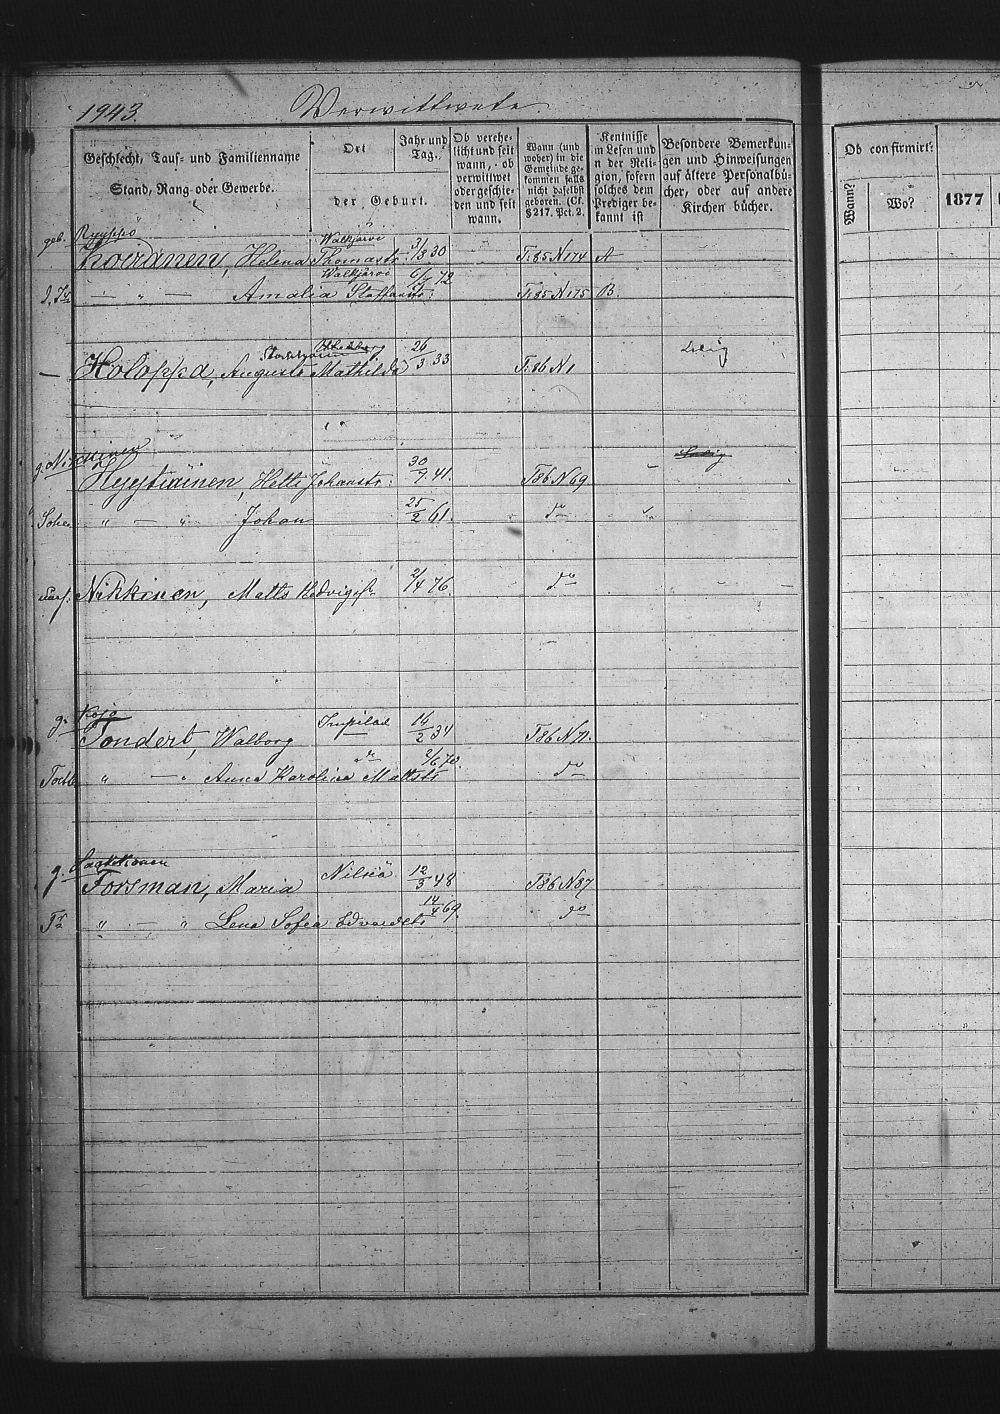 1943. Verwittwete
Geschlecht, Tauf- und Familienname
Stand, Rang oder Gewerbe.
Ort
der Geburt.
Jahr und
Tag.
Ob verehe-
licht und seit
wann, ob
verwittwet
oder geschie-
den und seit
wann.
Wann (und
woher) in die
Gemeinde ge-
kommen falls
nicht daselbst
geboren. (Cf.
§ 217. Pct. 2.
Kentnisse
im Lesen und
n der Reli-
gion, sofern
solches dem
Prediger be-
kannt ist
Besondere Bemerkun-
gen und Hinweisungen
auf ältere Personalbü-
cher, oder auf andere
Kirchen bücher.
Ob confirmirt:
Wann?
Wo?
1877
geb. Ryyppö
Helena Thomastr. Walkjärvi 3/8 30 T:85 N174 A
— " — Amalia Walkjärvi 72 T:85 N175 B.
— Holoppa, Augusta Mathilda 26/3 33 T:86 N1
Hyytiäinen, Johanstr: 30/9 41. T86 N69
Sohn " — " Johan 25/2 61. do
Nikkinen, Matts 2/4 76. do
g. Kojo
Tondert, Walborg Impilax 14/2 34 T86 N71.
Tocht " — " Anna Karolina Mattstr do
g.
Forsman, Maria Nilsiä 12/3 48 T86 N87
" — " Lena Sofia 14/4 69. do